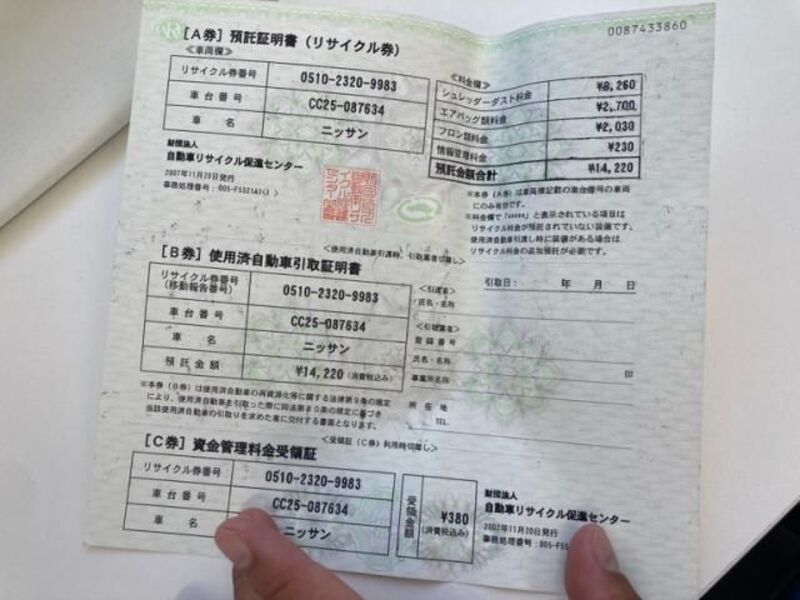 0087433860
[A券] 預託証明書 (リサイクル券)
≪車両欄≫
リサイクル券番号 0510-2320-9983
車台番号 CC25-087634
車名 ニッサン
≪料金欄≫
シュレッダーダスト料金 ¥8,260
エアバッグ類料金 ¥2,700
フロン類料金 ¥2,030
情報管理料金 ¥230
預託金額合計 ¥14,220
財団法人
自動車リサイクル促進センター
2007年11月20日発行
※本券(A券)は車両欄記載の車台番号の車両
にのみ有効です。
※料金欄で「*****」と表示されている項目は
リサイクル料金が預託されていない装備です。
使用済自動車引渡し時に装備がある場合は
リサイクル料金の追加預託が必要です。
[B券] 使用済自動車引取証明書
リサイクル券番号
(移動報告番号) 0510-2320-9983
車台番号 CC25-087634
車名 ニッサン
預託金額 ¥14,220 (消費税込み)
引取日: 年 月 日
≪引渡者≫
氏名・名称
≪引取業者≫
登録番号
氏名・名称 印
事業所名称
所在地
TEL.
※本券(B券)は使用済自動車の再資源化等に関する法律第9条の規定
により、使用済自動車を引取った際に同法第80条の規定に基づき
当該使用済自動車の引取りを求めた者に交付する書面となります。
<受領証(C券)利用時切離し>
[C券] 資金管理料金受領証
リサイクル券番号 0510-2320-9983
車台番号 CC25-087634
車名 ニッサン
受領金額 ¥380
(消費税込み)
財団法人
自動車リサイクル促進センター
2007年11月20日発行